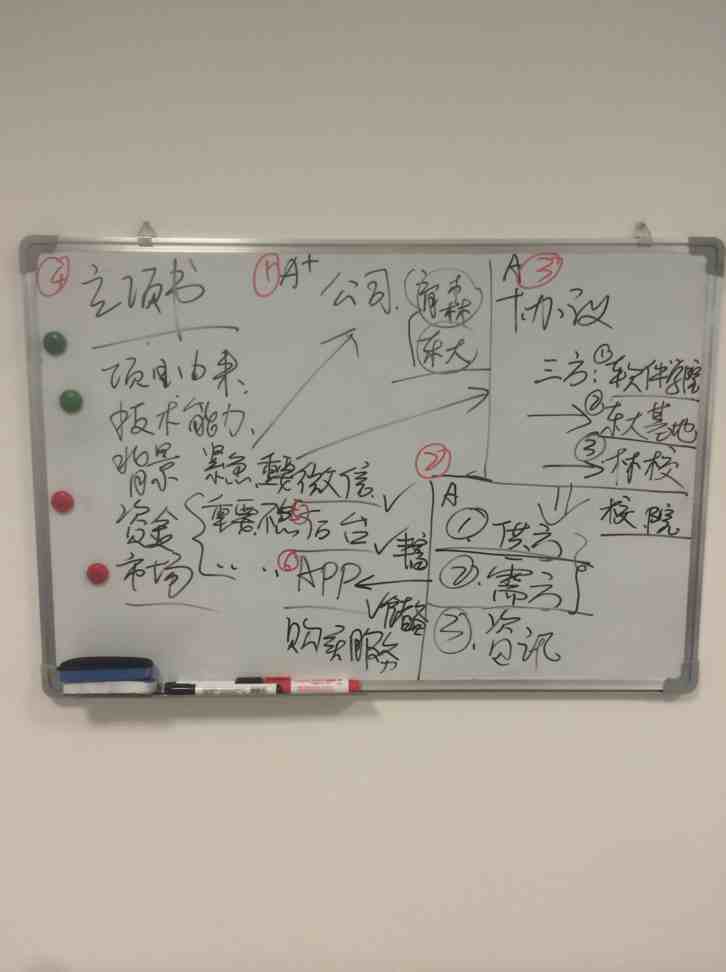 ④ 立项书
项目由来、
技术能力、
背景
资金
市场
① A+
公司
东大
紧急重要微信
重要不急
⑤后台
丰富
……
⑥APP
储备
购买服务
②
A
①、供方
②、需方
③、资讯
A ③
协议
三方：①软件学院
②东大基地
③林校
校院